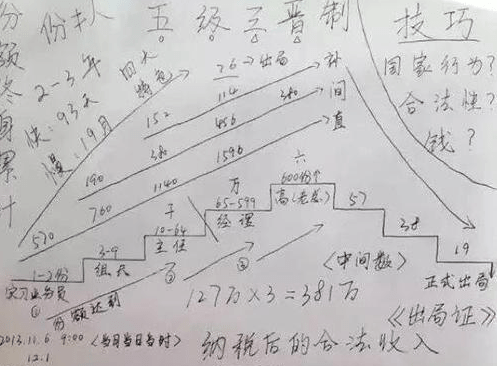 五级三晋制
技巧
份额终身累计
份
2-3年
快:93天
慢:19月
四大
特色
76→出局
补
间
直
152 114
190 38 456 380
570 760 1140 1596
国家行为?
合法性?
钱?
1-2份
实习业务员
①
3-9
组长
份额达到
10-64
主任
②
65-599
经理
③
六
600份
高(老总)
万
千
57
38
19
正式出局
《出局证》
<中间数>
127万×3=381万
纳税后的合法收入
2013.11.6 9:00 <当月当日当时>
12.1